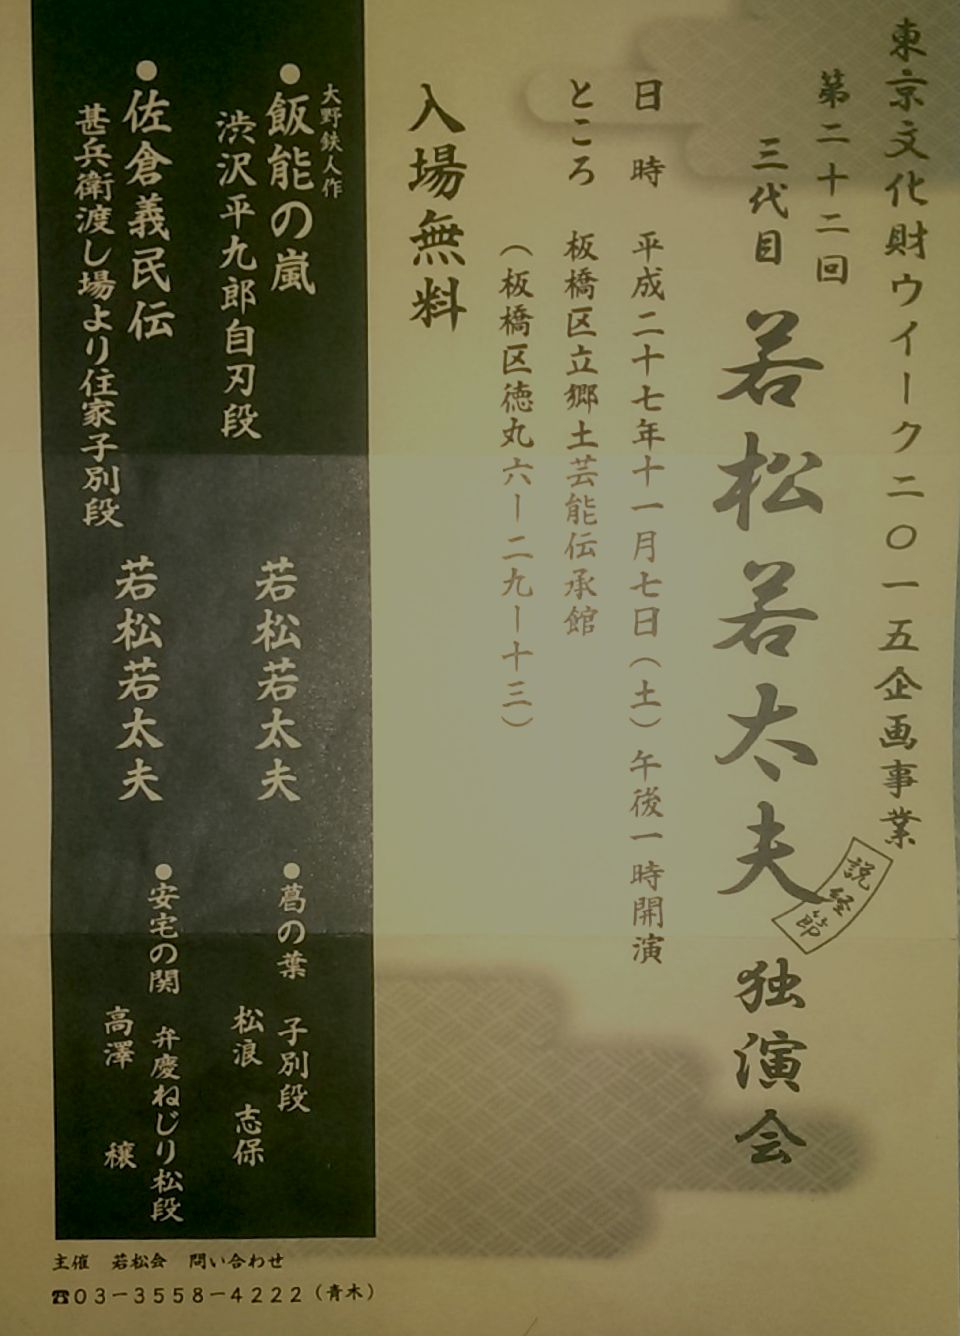 東京文化財ウイーク二〇一五企画事業
第二十二回
三代目 若松若太夫 独演会
説経節
日 時 平成二十七年十一月七日（土）午後一時開演
ところ 板橋区立郷土芸能伝承館
（板橋区徳丸六ー二九ー十三）
入場無料
大野鉄人作
●飯能の嵐
渋沢平九郎自刃段
若松若太夫
●佐倉義民伝
甚兵衛渡し場より住家子別段
若松若太夫
●葛の葉 子別段
松浪 志保
●安宅の関 弁慶ねじり松段
高澤 穣
主催 若松会 問い合わせ
☎03-3558-4222（青木）